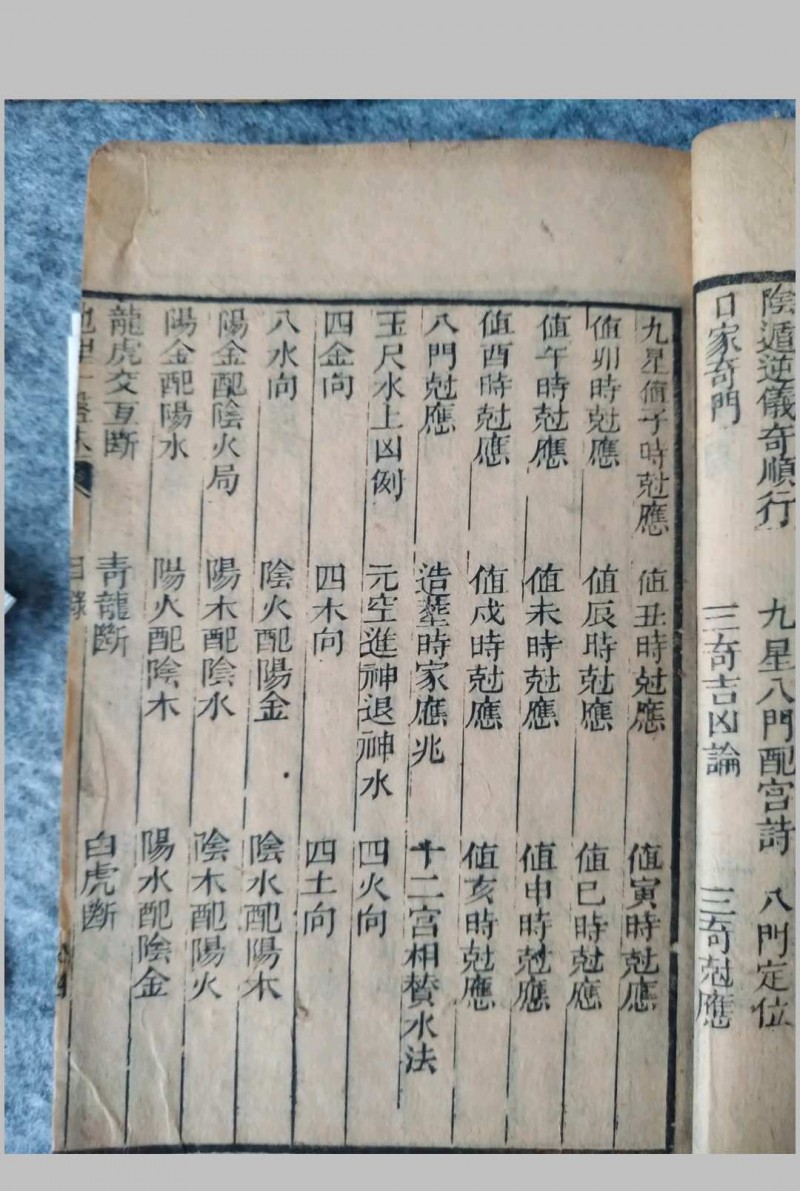 陰遁逆儀奇順行 九星八門配宮詩 八門定位
日家奇門 三奇吉凶論 三奇尅應
九星值子時尅應 值丑時尅應 值寅時尅應
值卯時尅應 值辰時尅應 值巳時尅應
值午時尅應 值未時尅應 值申時尅應
值酉時尅應 值戌時尅應 值亥時尅應
八門尅應 造塟時家應兆 十二宮相賛水法
玉尺水上凶例 元空進神退神水 四火向
四金向 四木向 四土向
八水向 陰火配陽金 陰水配陽木
陽金配陰火局 陽木配陰水 陰木配陽火
陽金配陽水 陽火配陰木 陽水配陰金
龍虎交互断 青龍断 白虎断
目錄